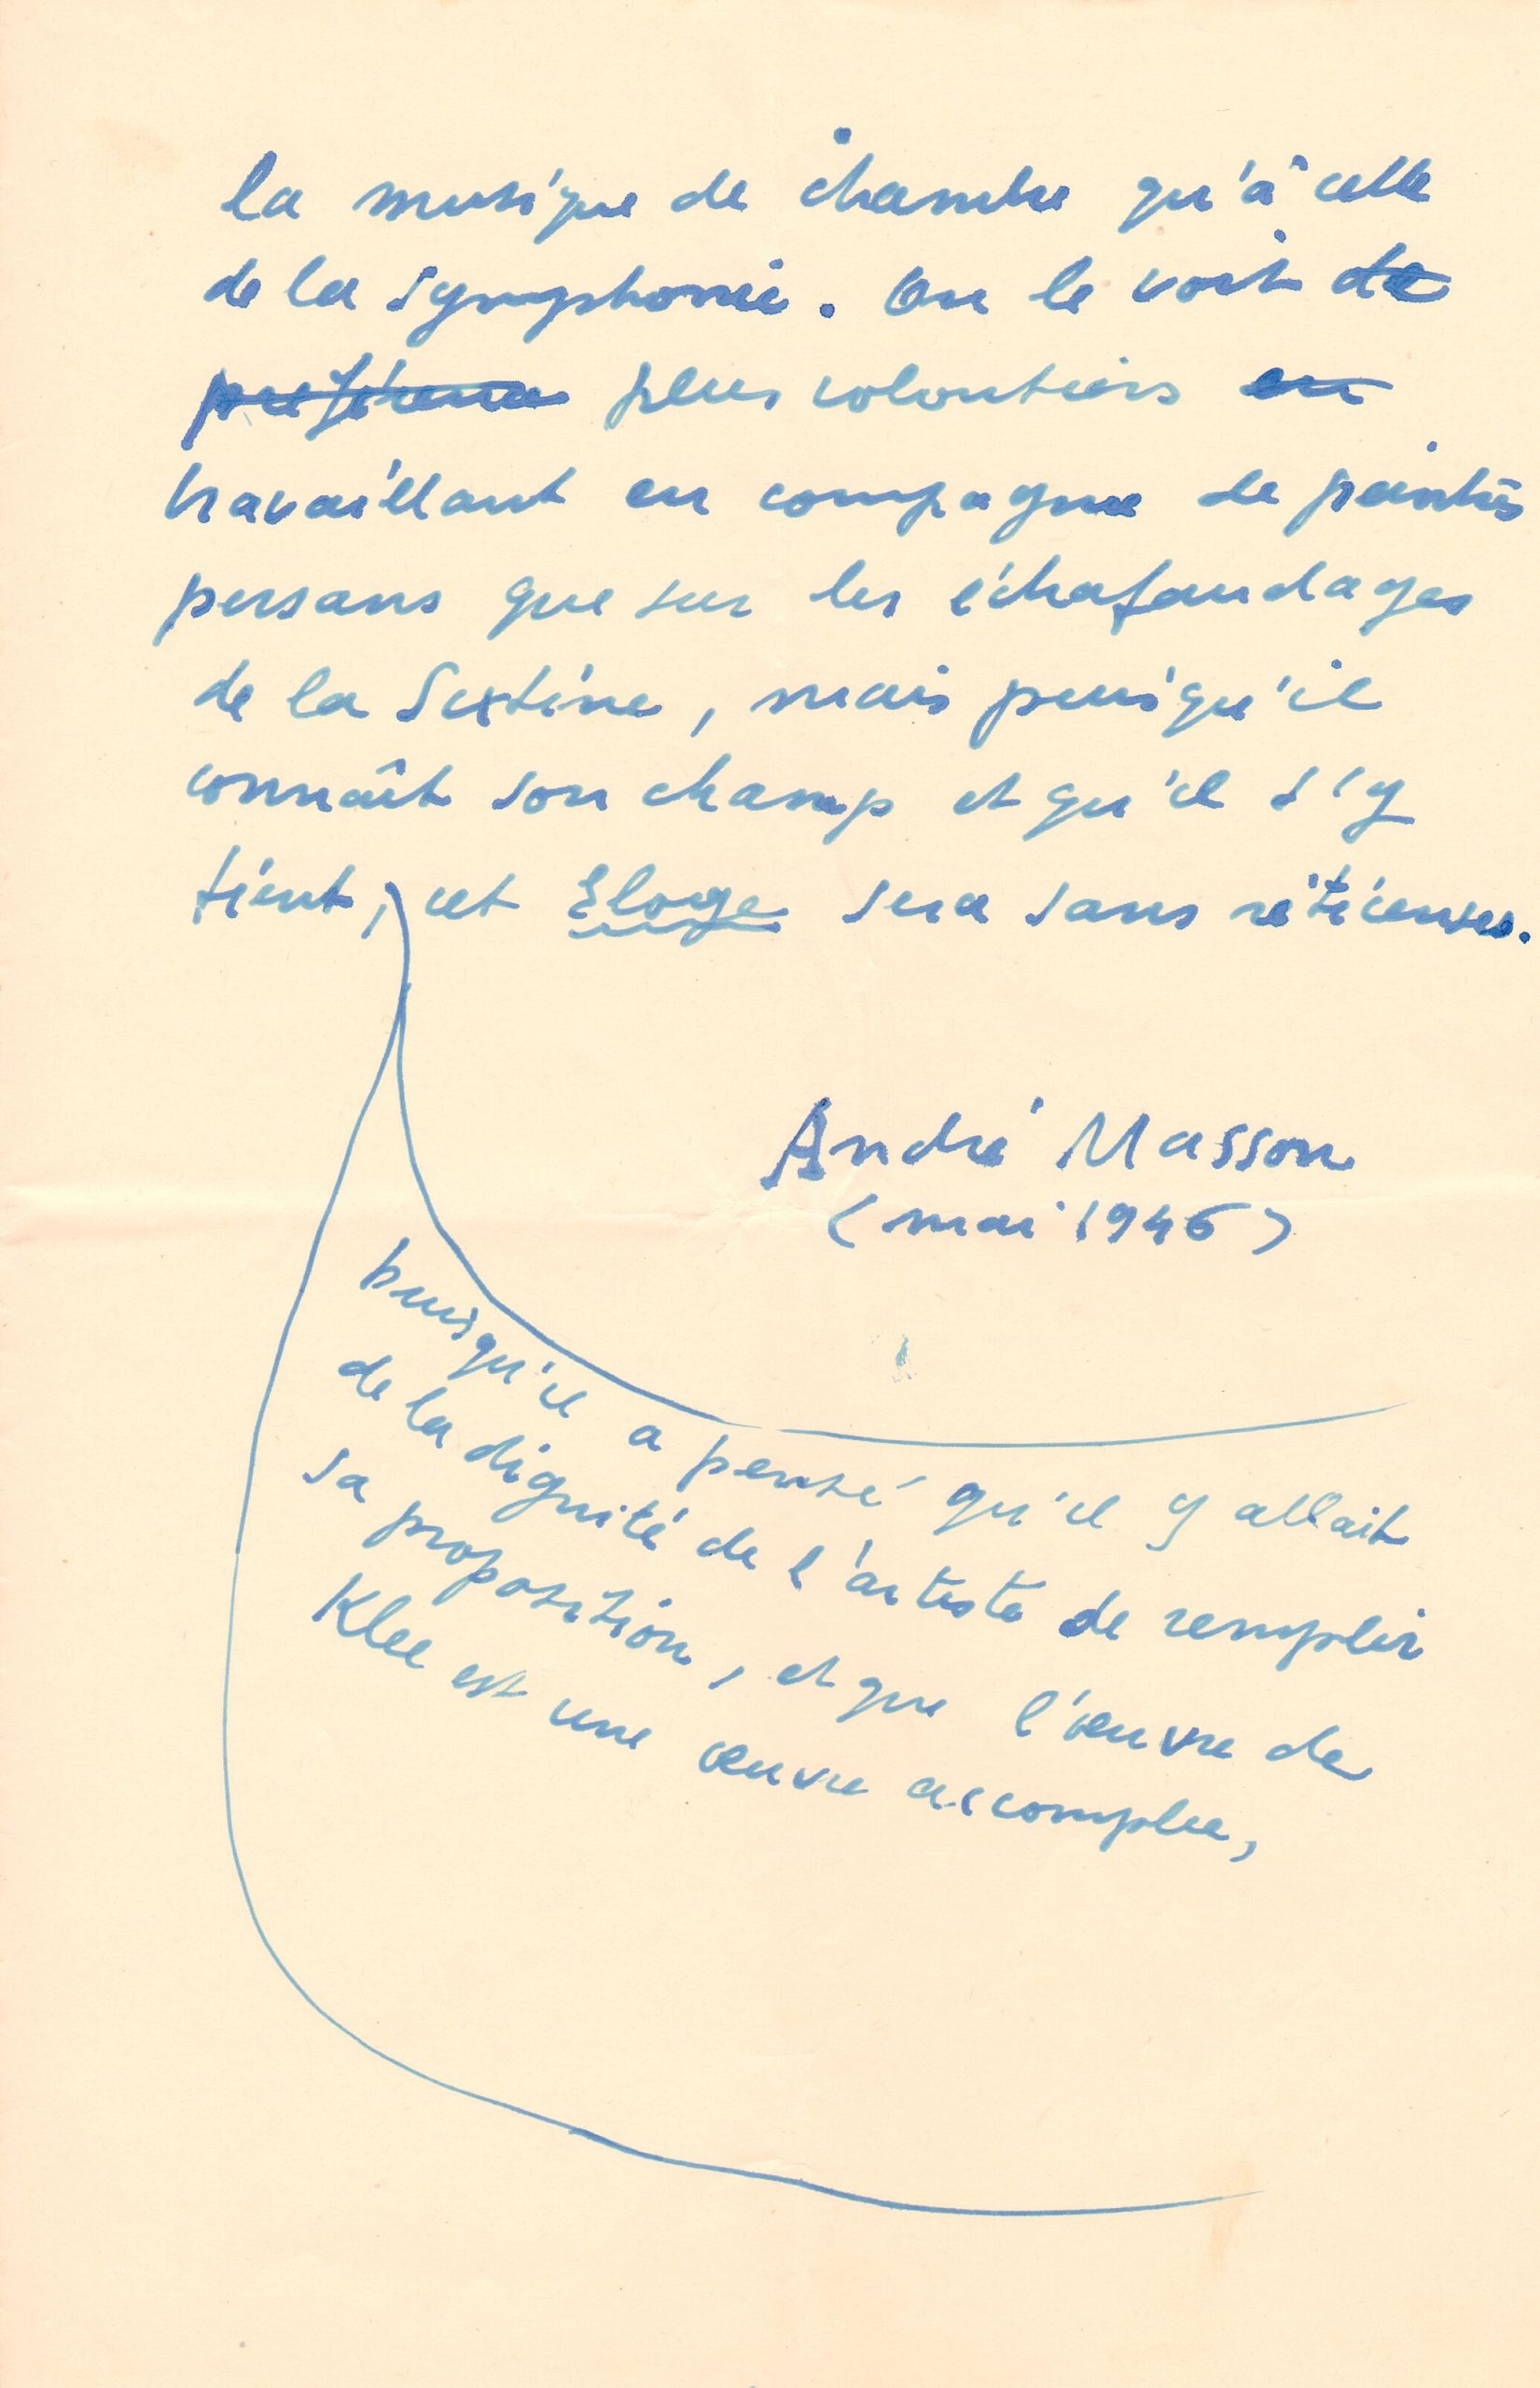 la musique de chambre qu'à celle
de la symphonie. On le voit de
préférence plus volontiers en
travaillant en compagnie de peintres
persans que sur les échafaudages
de la Sixtine, mais puisqu'il
connaît son champ et qu'il s'y
tient, cet Eloge sera sans réticences.
André Masson
(mai 1946)
puisqu'il a pensé qu'il y allait
de la dignité de l'artiste de remplir
sa proposition, et que l'œuvre de
Klee est une œuvre accomplie,